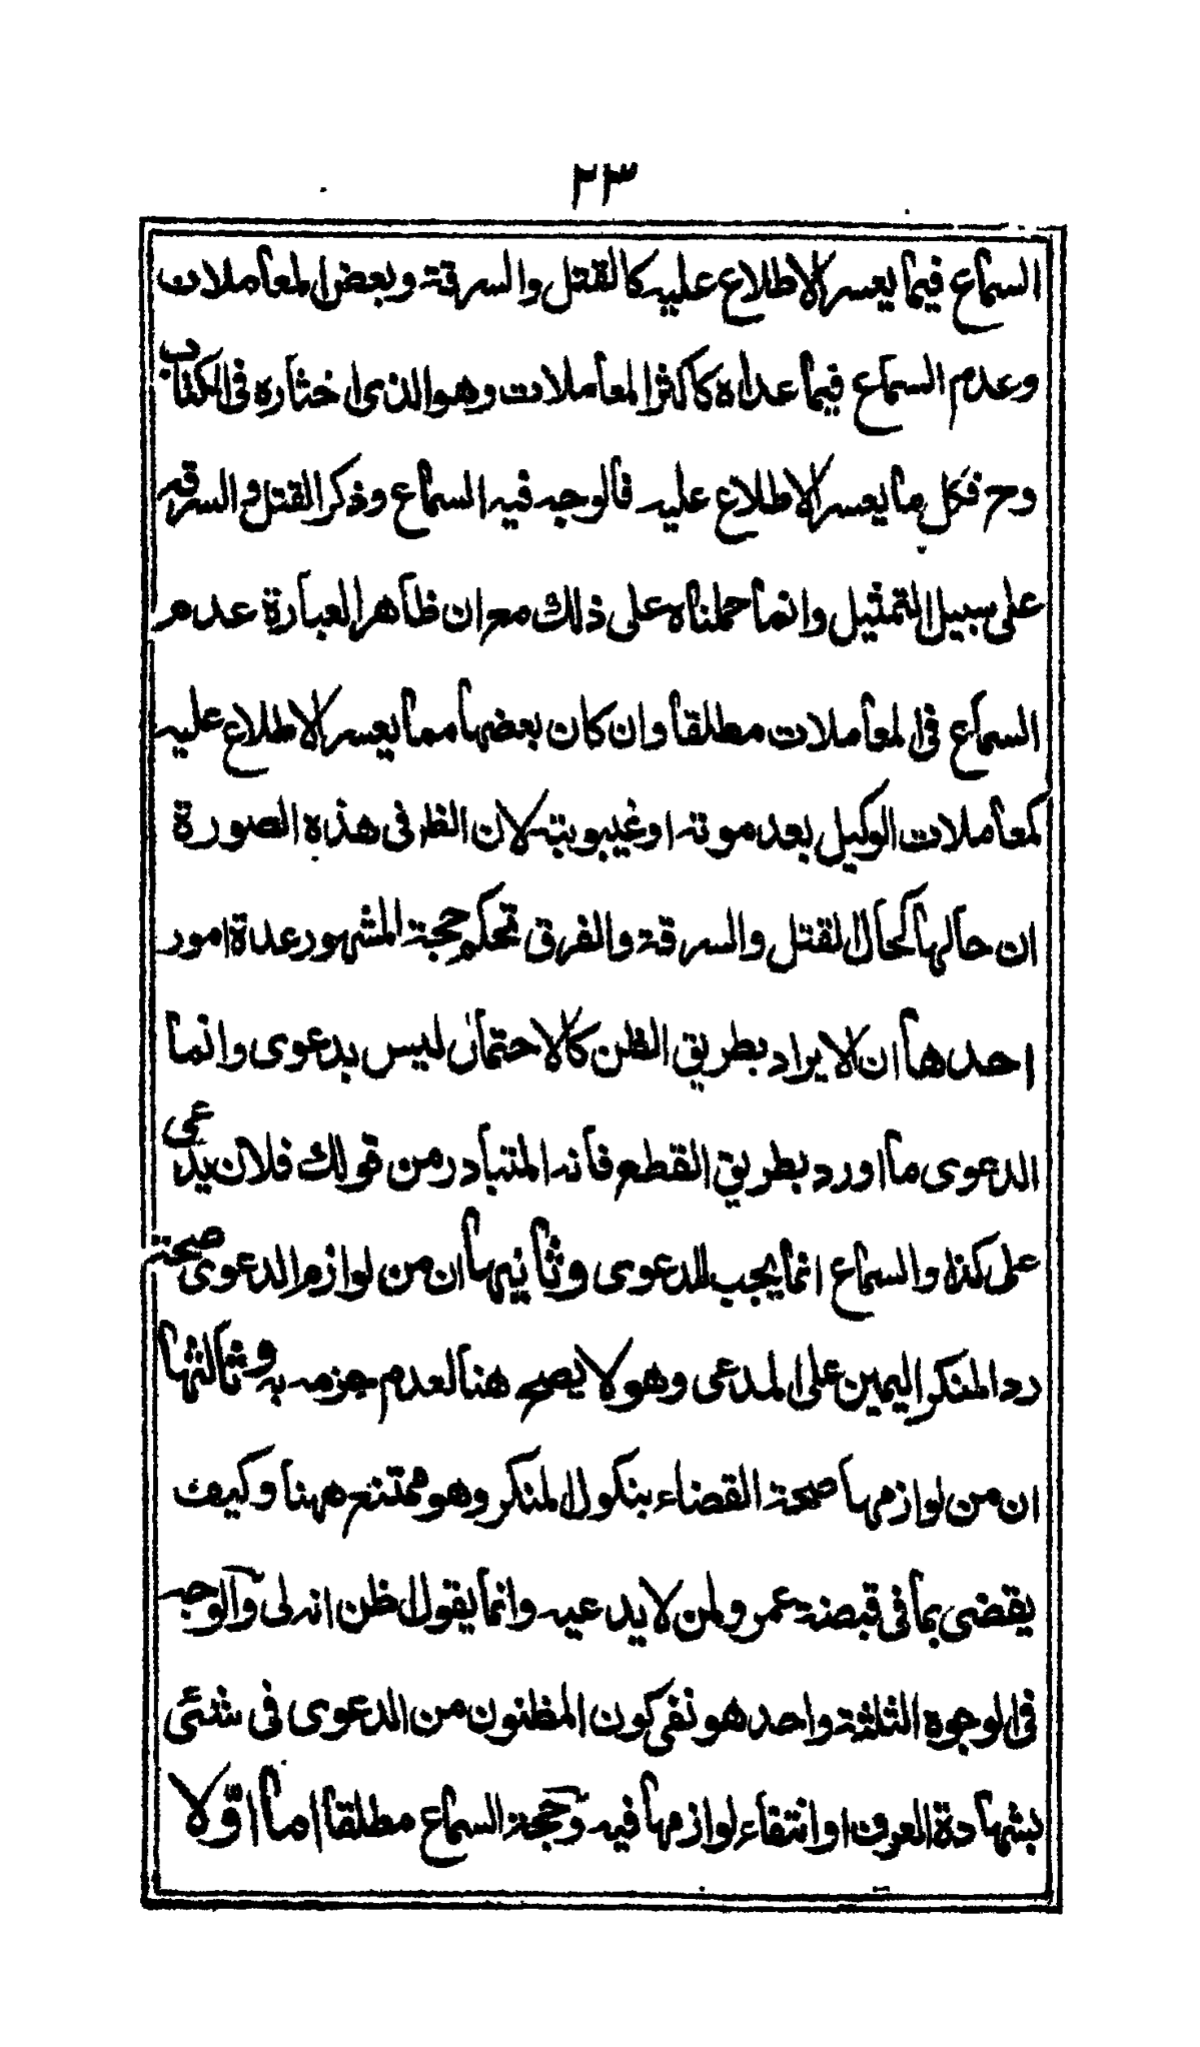 ٢٣
السماع فيما يعسر الاطلاع عليه كالقتل والسرقة وبعض المعاملات
وعدم السماع فيما عداه كاكثر المعاملات وهو الذى اختاره فى الكتاب
وح فكل ما يعسر الاطلاع عليه فالوجه فيه السماع وذكر القتل والسرقه
على سبيل التمثيل وانما حملناه على ذلك مع ان ظاهر العبارة عدم
السماع فى المعاملات مطلقا وان كان بعضها مما يعسر الاطلاع عليه
كمعاملات الوكيل بعد موته او غيبوبته لان الظ فى هذه الصورة
ان حالها كحال القتل والسرقة والفرق تحكم حجة المشهور عدة امور
احدها ان الايراد بطريق الظن كالاحتمال ليس بدعوى وانما
الدعوى ما اورد بطريق القطع فانه المتبادر من قولك فلان يدعى
على كذا والسماع انما يجب للدعوى وثانيها ان من لوازم الدعوى صحة
رد المنكر اليمين على المدعى وهو لا يصح هنا لعدم جزمه به وثالثها
ان من لوازمها صحة القضاء بنكول المنكر وهو ممتنع ههنا وكيف
يقضى بما فى قبضة عمرو لمن لا يدعيه وانما يقول اظن انه لى والوجه
فى الوجوه الثلثة واحد هو نفى كون المظنون من الدعوى فى شئى
بشهادة العرف او انتفاء لوازمها فيه وحجة السماع مطلقا اما اوّلا